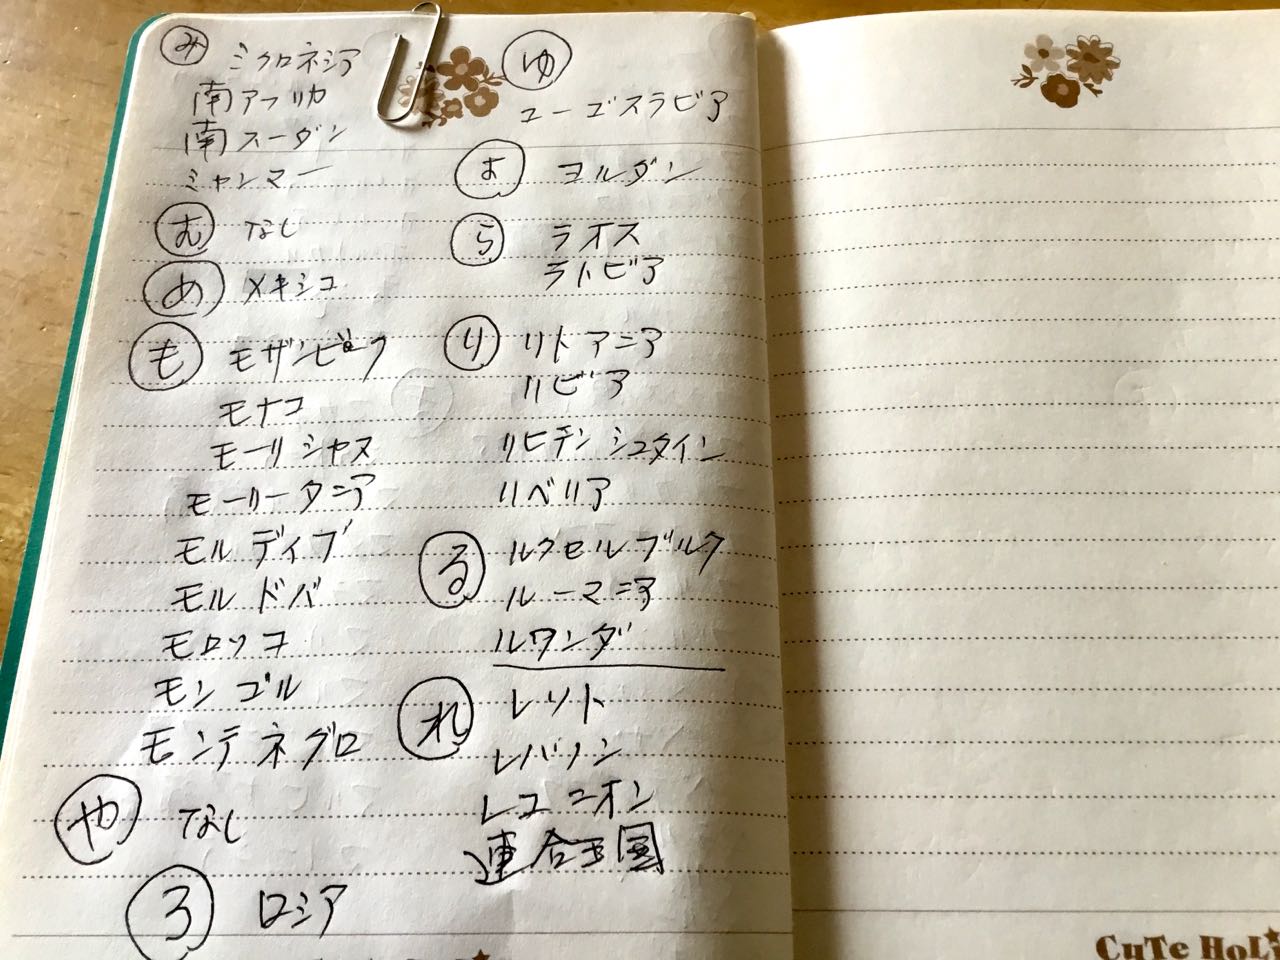 み ミクロネシア
南アフリカ
南スーダン
ミャンマー
む なし
め メキシコ
も モザンビーク
モナコ
モーリシャス
モーリータニア
モルディブ
モルドバ
モロッコ
モンゴル
モンテネグロ
や なし
ゆ
ユーゴスラビア
よ ヨルダン
ら ラオス
ラトビア
り リトアニア
リビア
リヒテンシュタイン
リベリア
る ルクセルブルク
ルーマニア
ルワンダ
れ レソト
レバノン
レユニオン
連合王国
ろ ロシア
CuTe HoLi